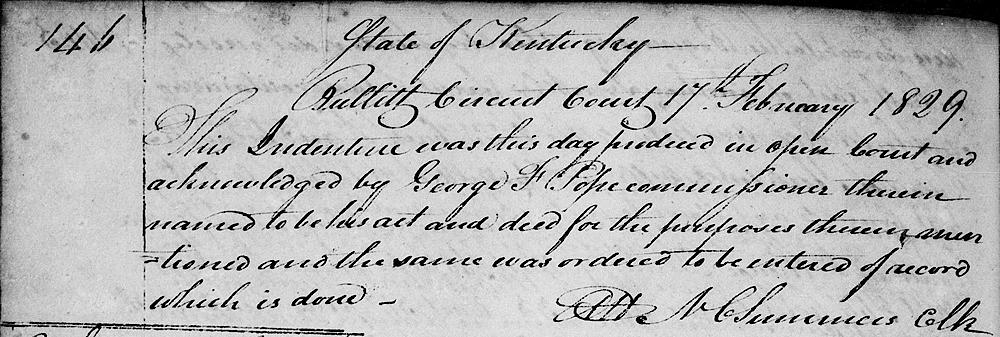 146 State of Kentucky
Bullitt Circuit Court 17th February 1829.
This Indenture was this day produced in open Court and
acknowledged by George F Pope commissioner therein
named to be his act and deed for the purposes therein men
=tioned and the same was ordered to be entered of record
which is done –
Att. N C Summers Clk